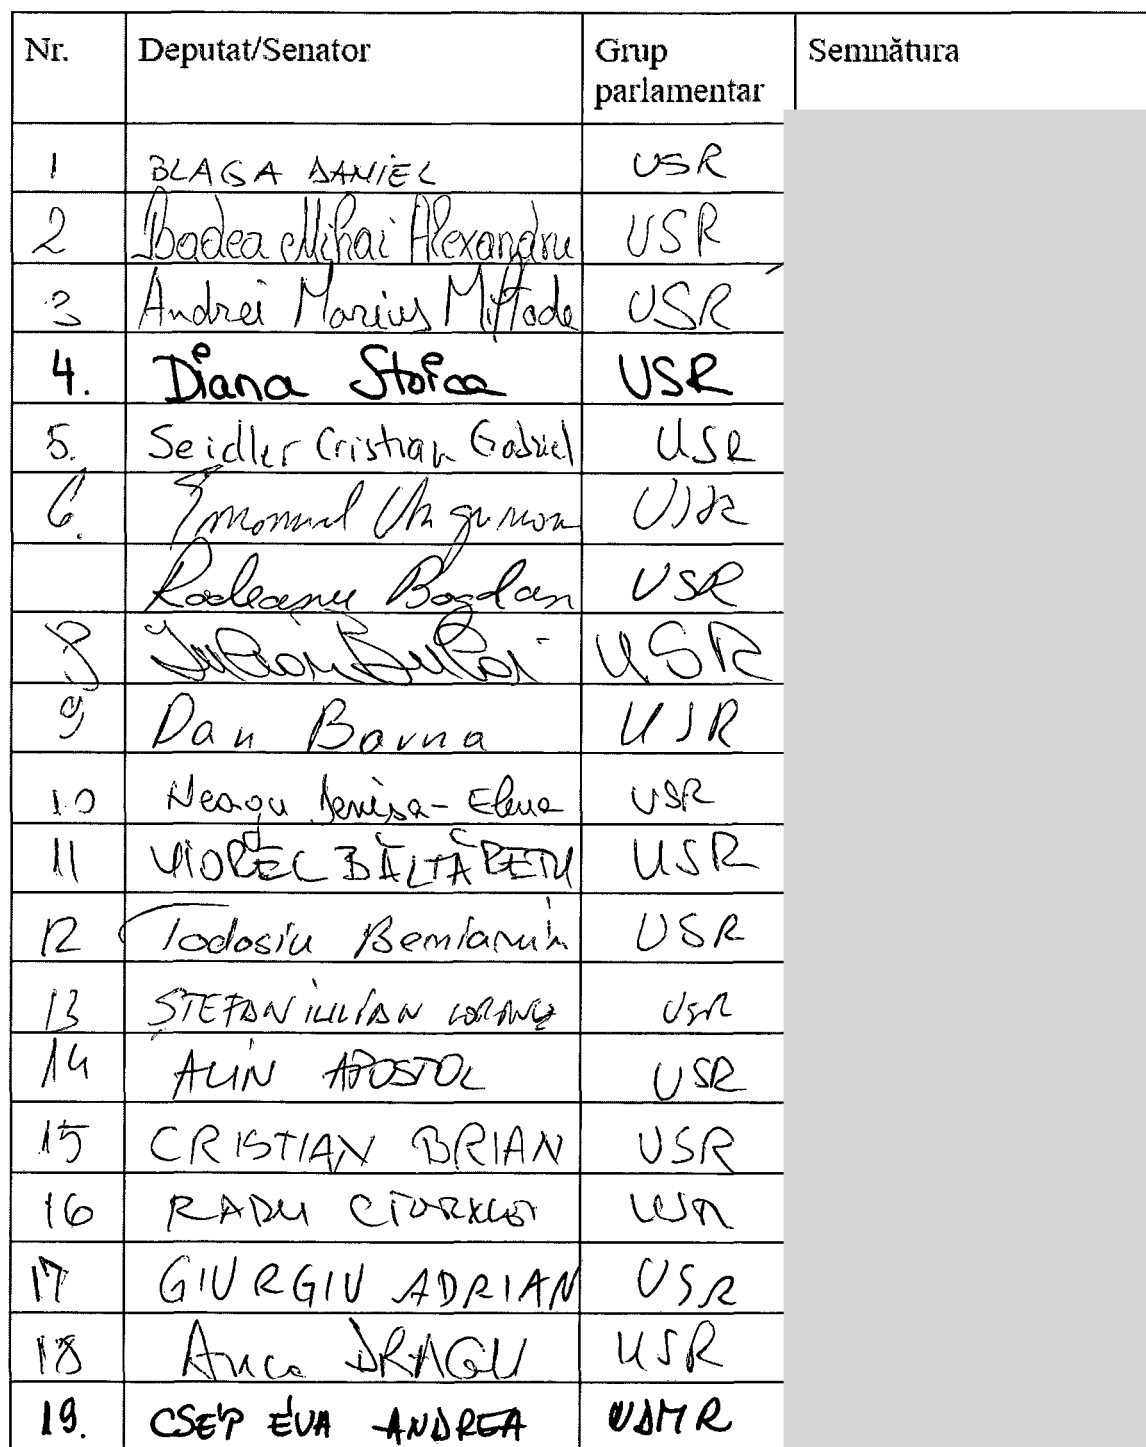 Nr. Deputat/Senator Grup parlamentar Semnătura
1 BLAGA DANIEL USR
2 Badea Mihai Alexandru USR
3 Andrei Marius Miftode USR
4. Diana Stoica USR
5. Seidler Cristian Gabriel USR
6. Emanuel Ungureanu USR
Rodeanu Bogdan USR
8 Iulian Bulai USR
9 Dan Barna USR
10 Neagu Denisa-Elena USR
11 VIOREL BĂLTĂREȚU USR
12 Todosiu Beniamin USR
13 ȘTEFAN IULIAN LORINCZ USR
14 ALIN APOSTOL USR
15 CRISTIAN BRIAN USR
16 RADU USR
17 GIURGIU ADRIAN USR
18 Anca DRAGU USR
19. CSEP EVA ANDREA UDMR